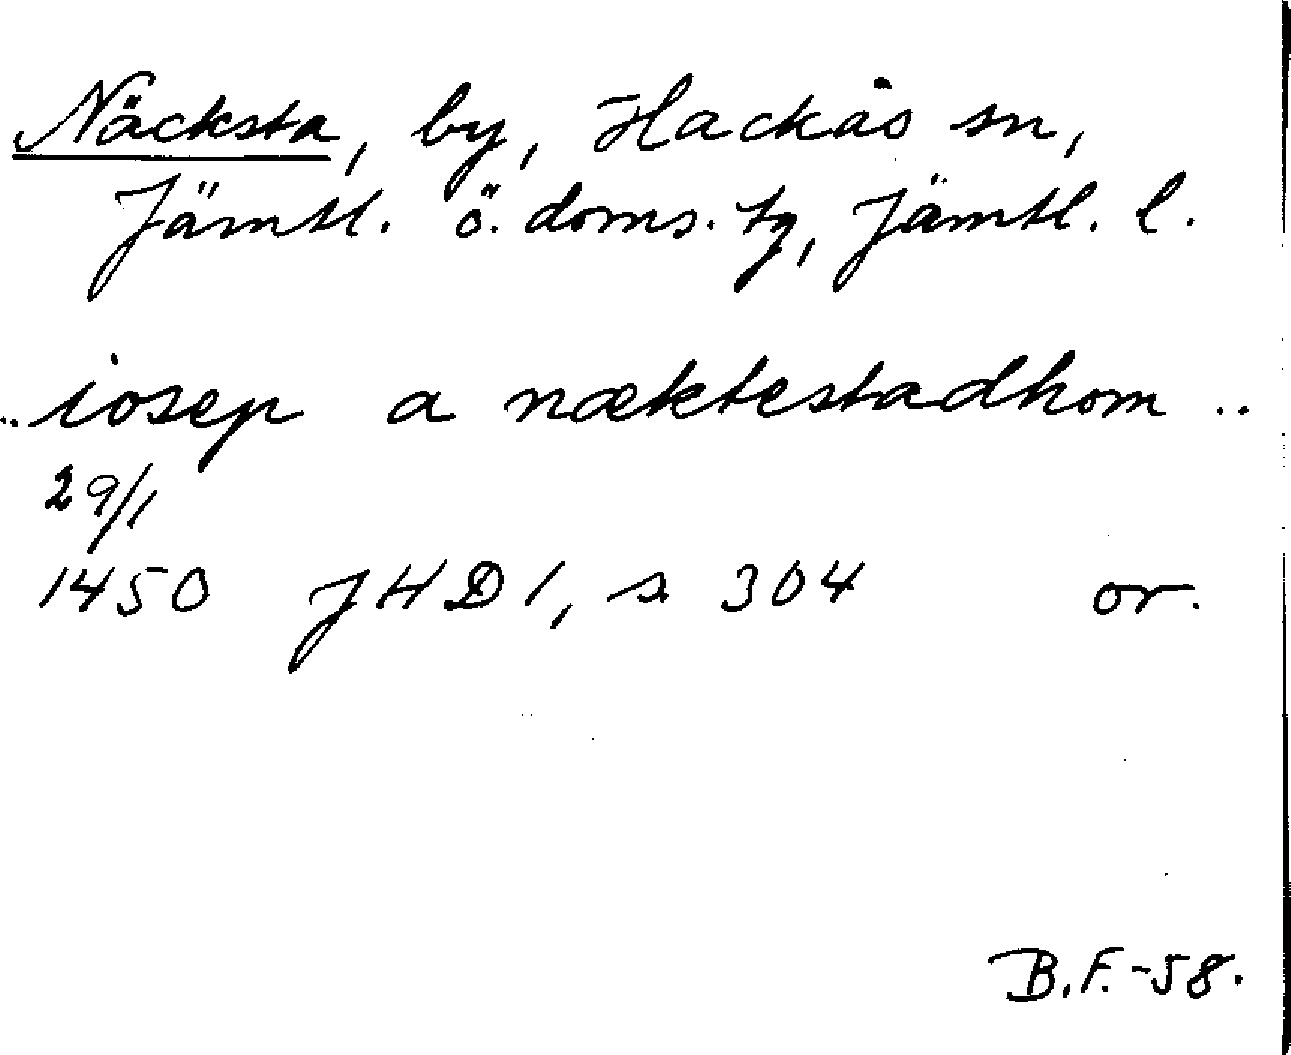 Näcksta, by, Hackås sn,
Jämtl. ö. doms. tg, Jämtl. l.
..iosep a næktestadhom ..
29/1
1450 JHD 1, s 304 or.
B.F.-58.